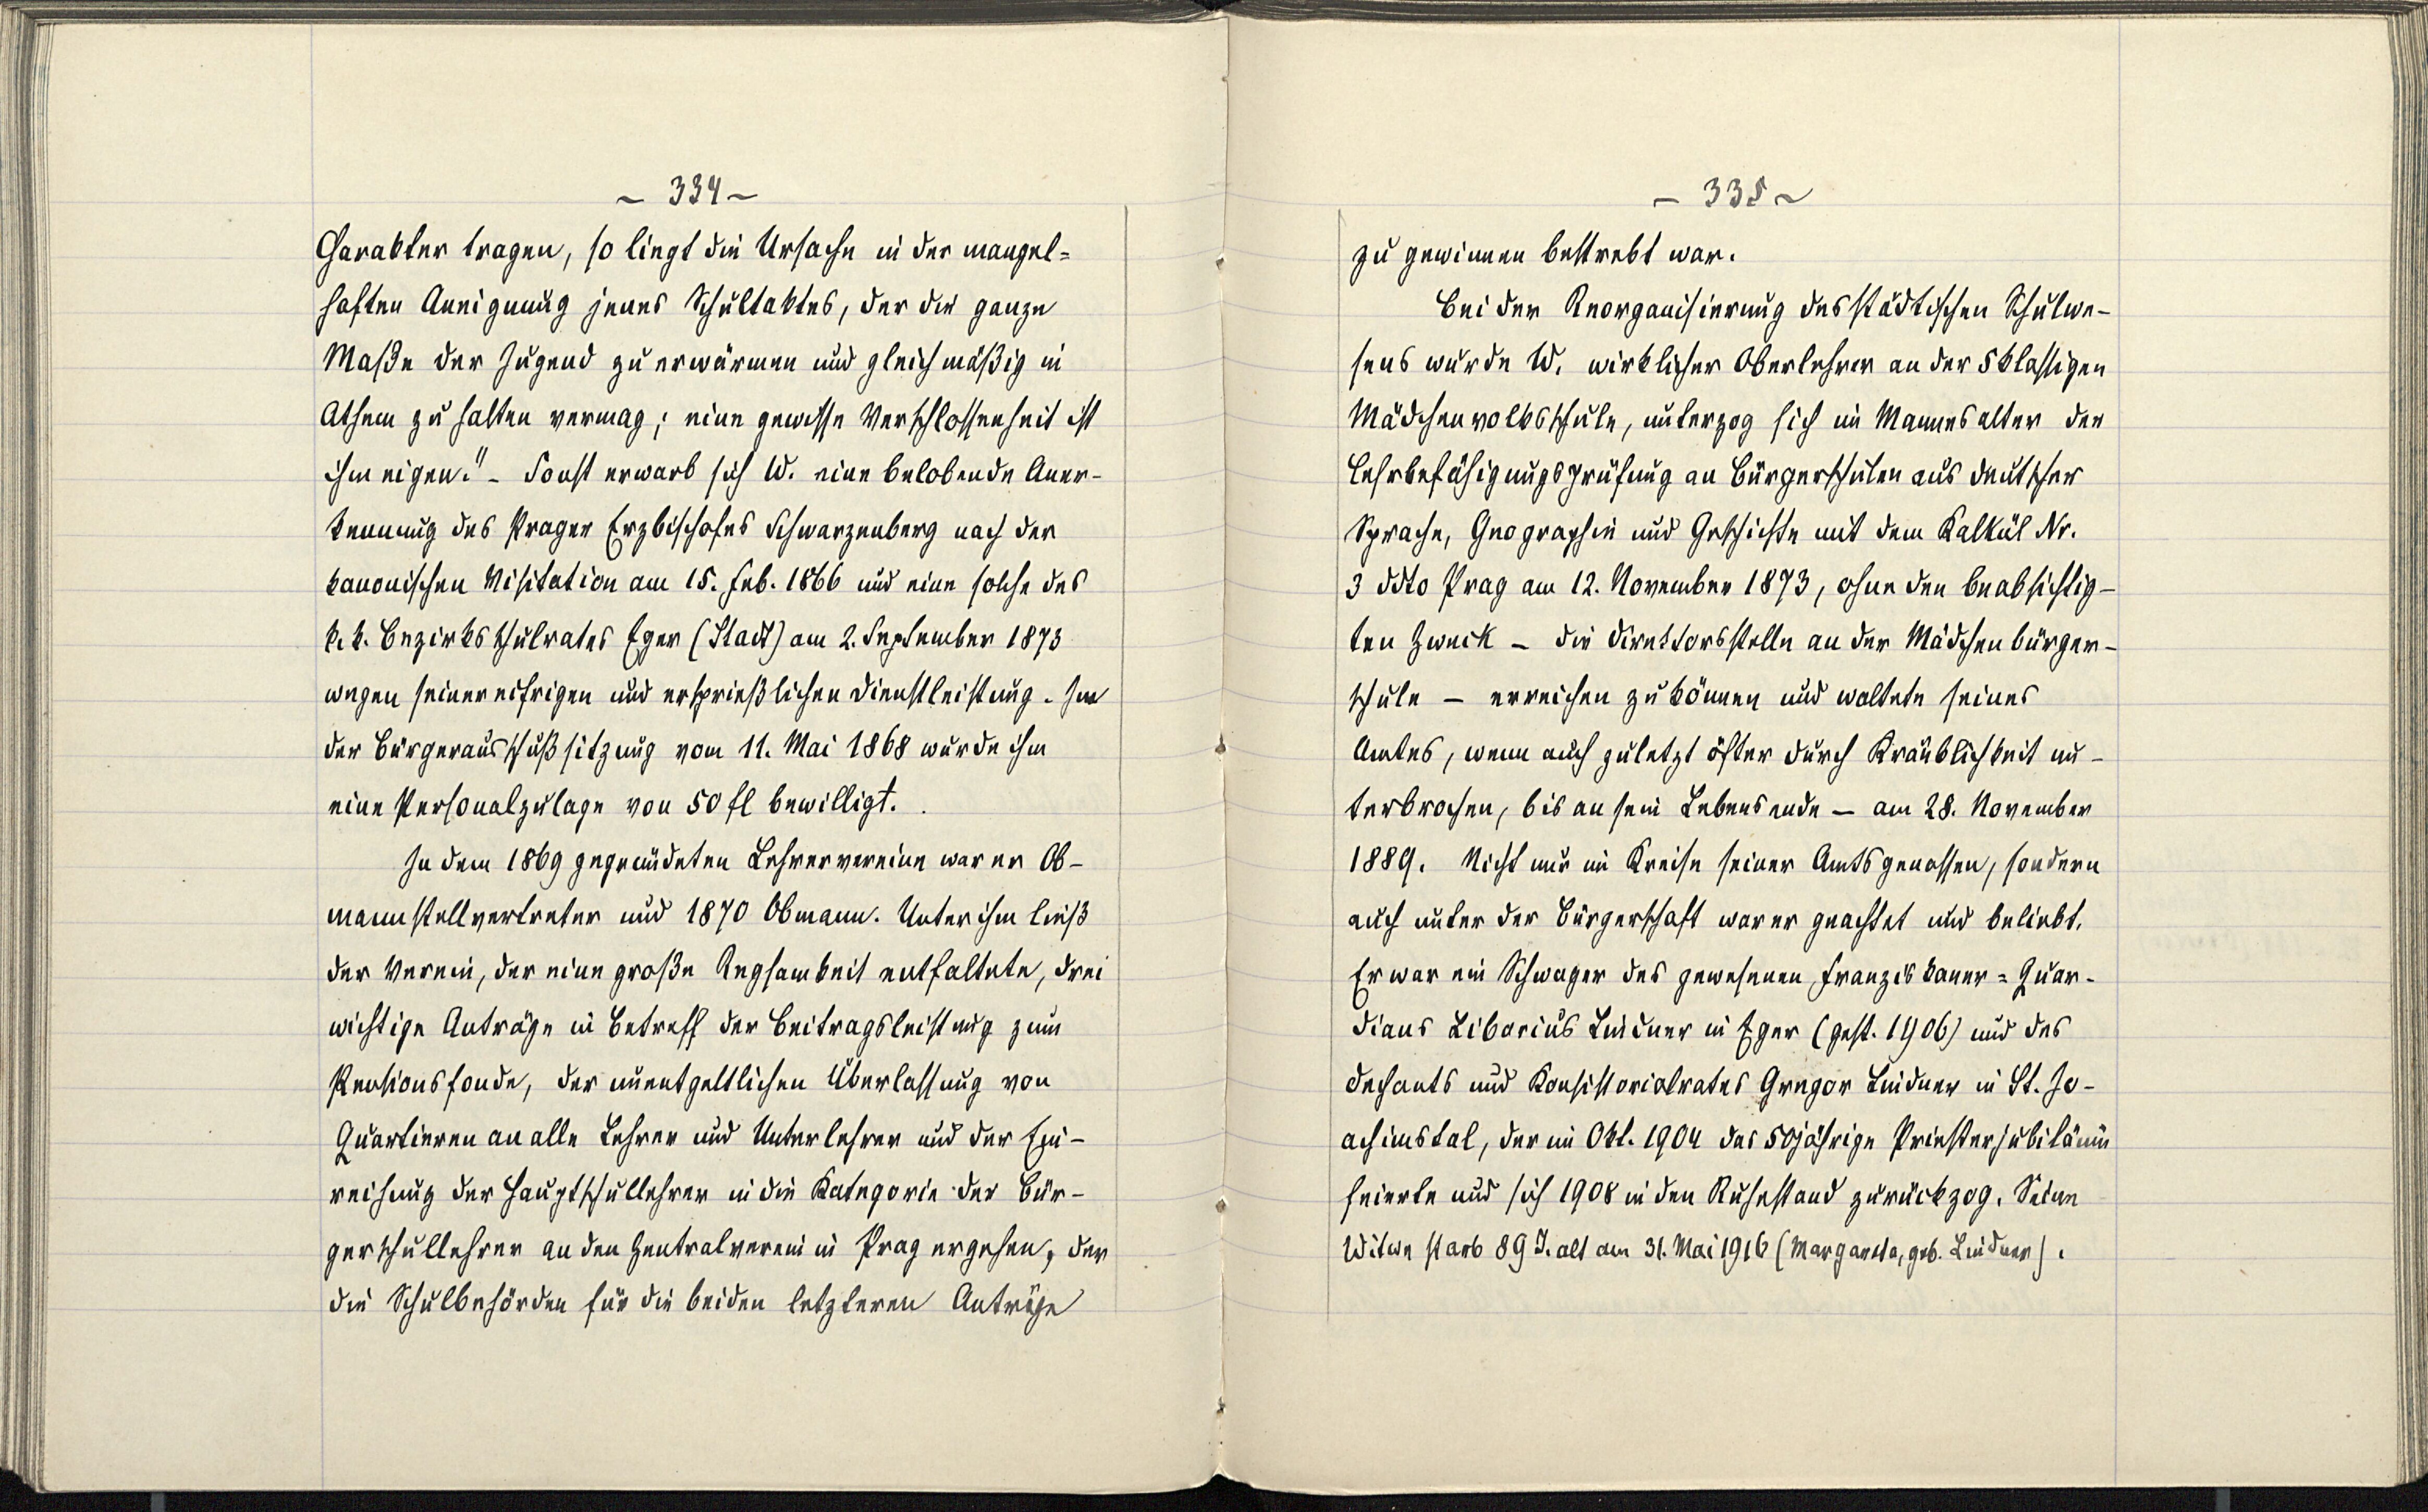 ~ 334 ~
Charakter tragen, so liegt die Ursache in der mangel=
haften Aneignung jenes Schultaktes, der die ganze
Maße der Jugend zu erwärmen und gleichmäßig in
Athem zu halten vermag; eine gewisse Verschlossenheit ist
ihm eigen." - Sonst erwarb sich W. eine belobende Aner-
kennung des Prager Erzbischofes Schwarzenberg nach der
kanonischen Visitation am 15. Feb. 1866 und eine solche des
k. k. Bezirksschulrates Eger (Stadt) am 2. September 1873
wegen seiner eifrigen und ersprießlichen Dienstleistung. In
der Bürgerausschußsitzung vom 11. Mai 1868 wurde ihm
eine Personalzulage von 50 fl bewilligt.
In dem 1869 gegründeten Lehrervereine war er Ob-
mannstellvertreter und 1870 Obmann. Unter ihm ließ
der Verein, der eine große Regsamkeit entfaltete, drei
wichtige Anträge in Betreff der Beitragsleistung zum
Pensionsfonde, der unentgeltlichen Überlassung von
Quartieren an alle Lehrer und Unterlehrer und der Ein-
reihung der Hauptschullehrer in die Kategorie der Bür-
gerschullehrer an den Zentralverein in Prag ergehen, der
die Schulbehörden für die beiden letzteren Anträge
- 335 ~
zu gewinnen bestrebt war.
Bei der Reorganisierung des städtischen Schulwe-
sens wurde W. wirklicher Oberlehrer an der 5klassigen
Mädchenvolksschule, unterzog sich im Mannesalter der
Lehrbefähigungsprüfung an Bürgerschulen aus deutscher
Sprache, Geographie und Geschichte mit dem Kalkül Nr.
3 ddto Prag am 12. November 1873, ohne den beabsichtig-
ten Zweck - die Direktorsstelle an der Mädchenbürger-
schule - erreichen zu können und waltete seines
Amtes, wenn auch zuletzt öfter durch Kränklichkeit un-
terbrochen, bis an sein Lebensende - am 28. November
1889. Nicht nur im Kreise seiner Amtsgenossen, sondern
auch unter der Bürgerschaft war er geachtet und beliebt.
Er war ein Schwager des gewesenen Franziskaner=Quar-
dians Liborius Lindner in Eger (gest. 1906) und des
Dechants und Konsistorialrates Gregor Lindner in St. Jo-
achimstal, der im Okt. 1904 das 50jährige Priesterjubiläum
feierte und sich 1908 in den Ruhestand zurückzog. Seine
Witwe starb 89 J. alt am 31. Mai 1916 (Margareta, geb. Lindner).